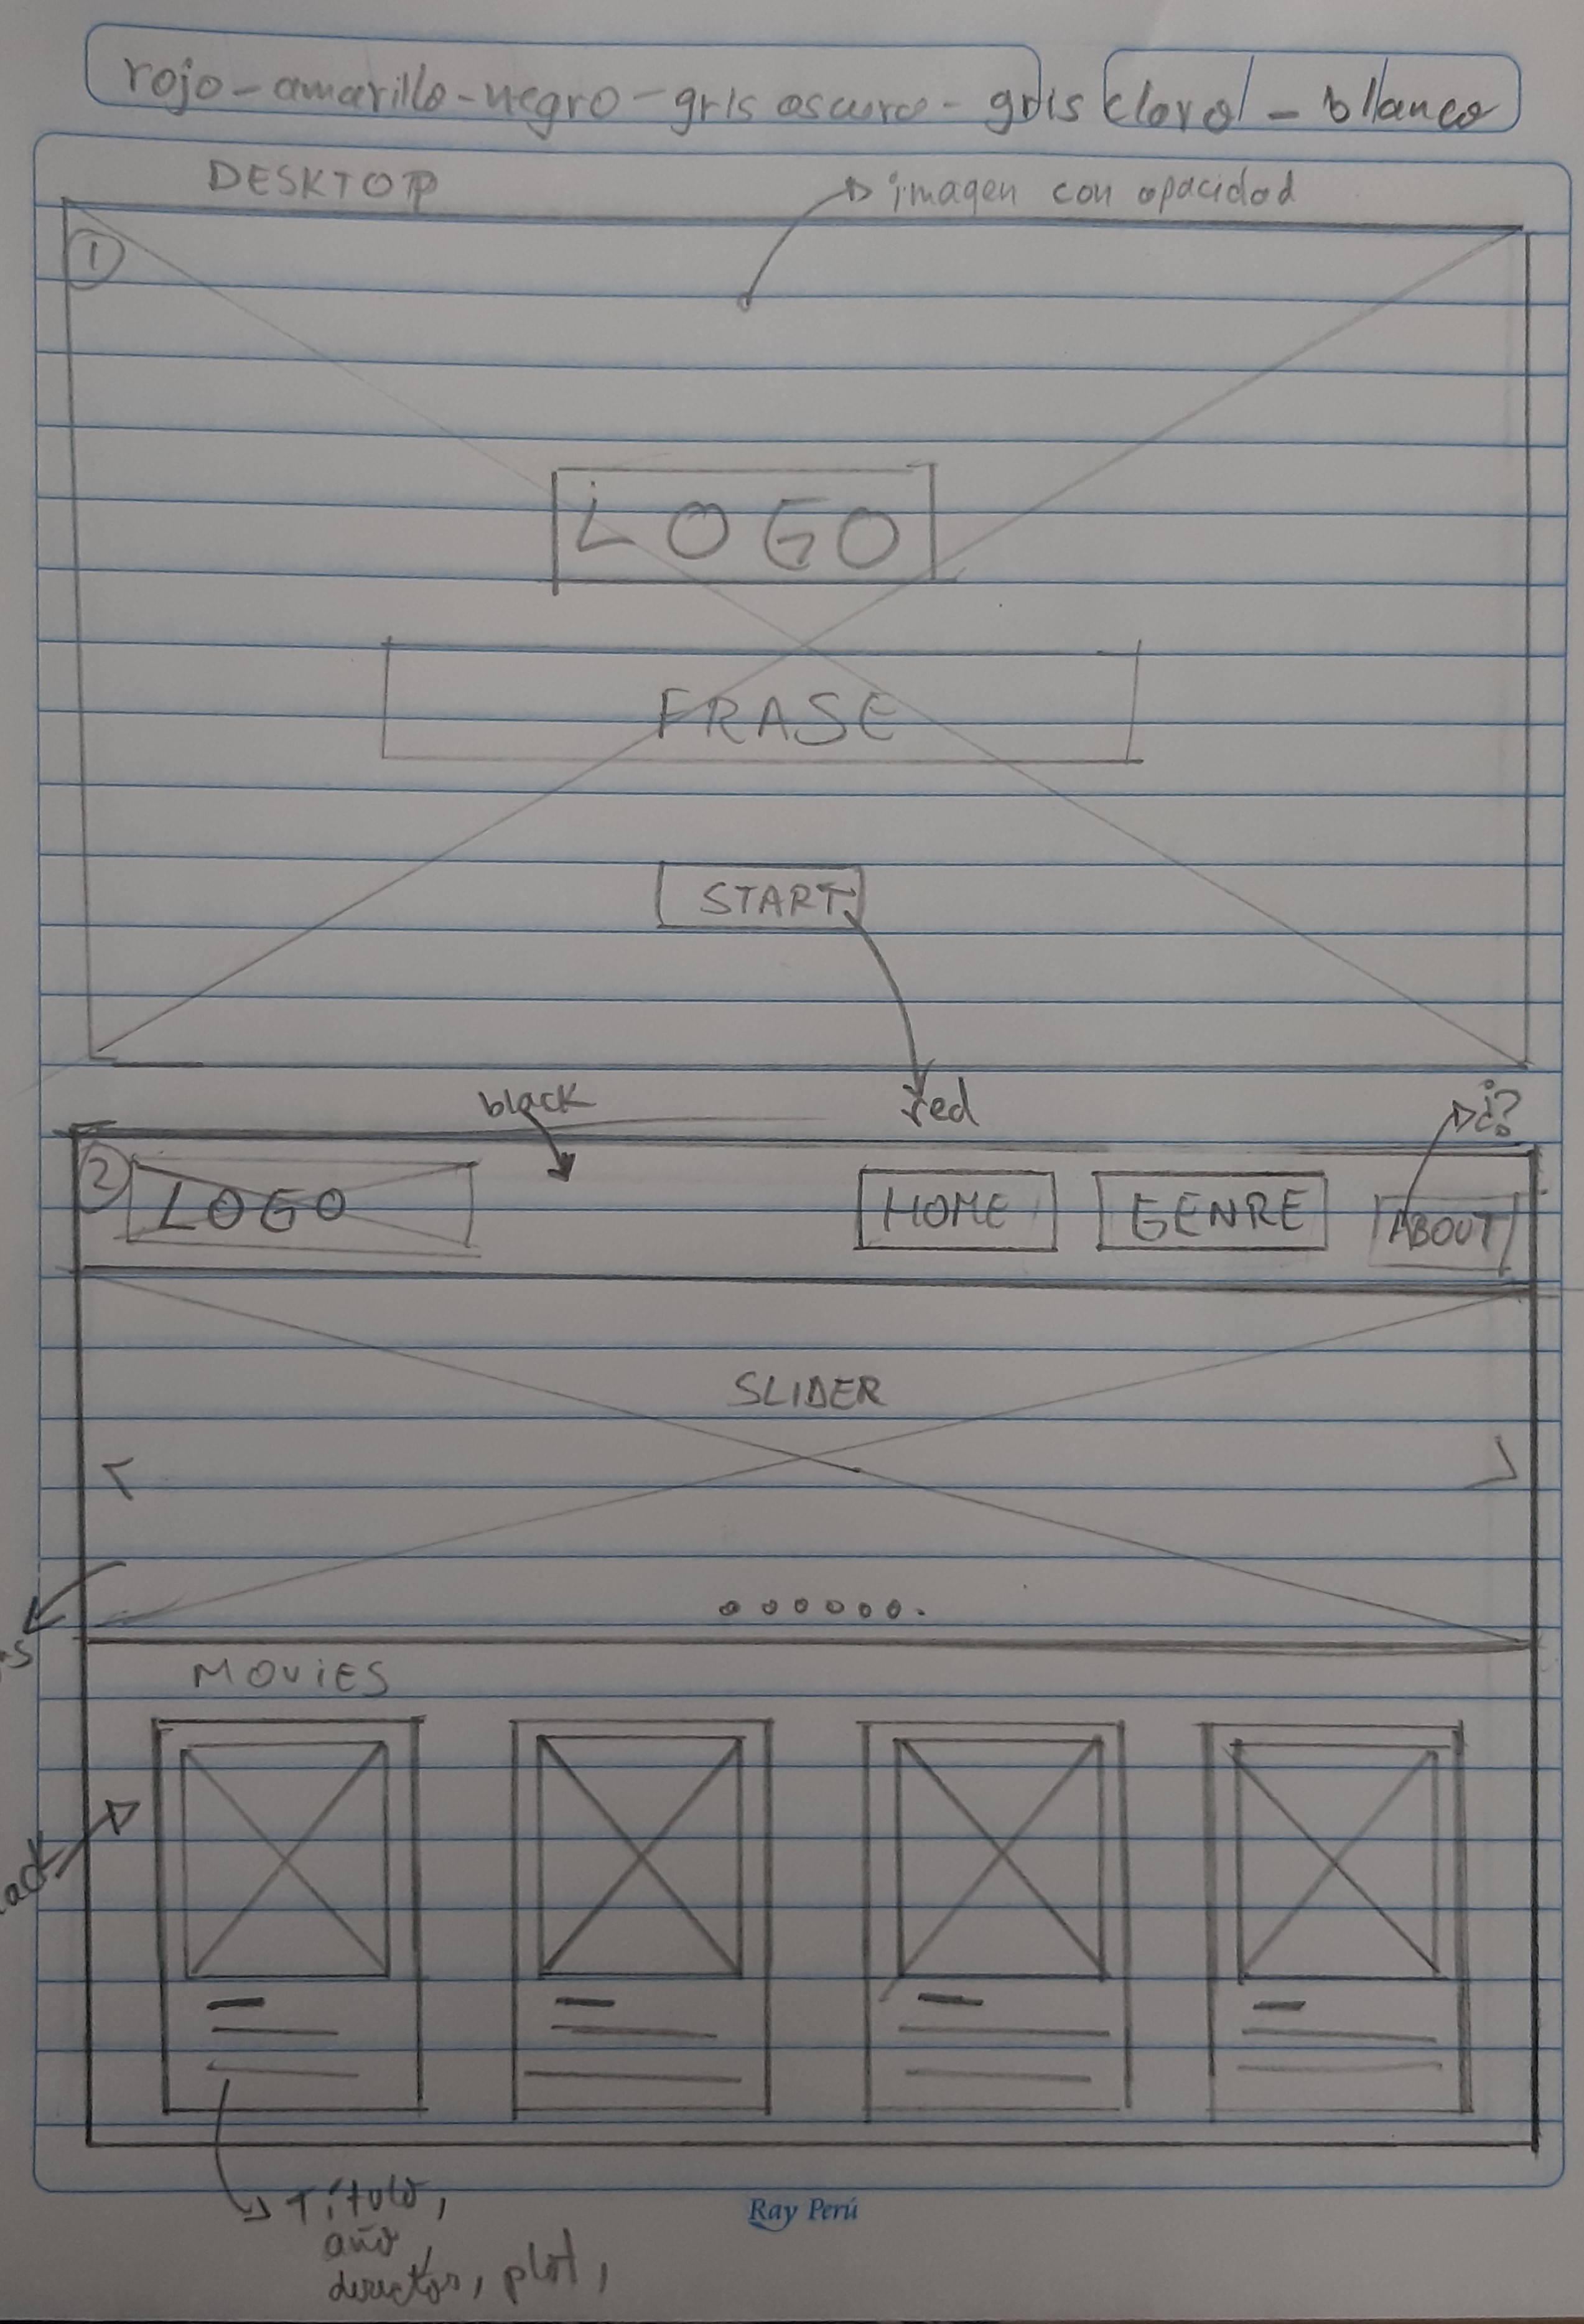 rojo - amarillo - negro - gris oscuro - gris claro - blanco
DESKTOP
imagen con opacidad
1
LOGO
FRASE
START
black
red
¿?
2
LOGO
HOME
GENRE
ABOUT
SLIDER
MOVIES
Título,
año,
director, plot,
Ray Perú